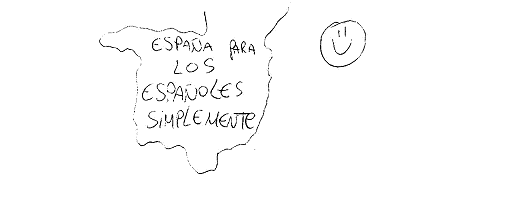 ESPAÑA PARA
LOS
ESPAÑOLES
SIMPLEMENTE